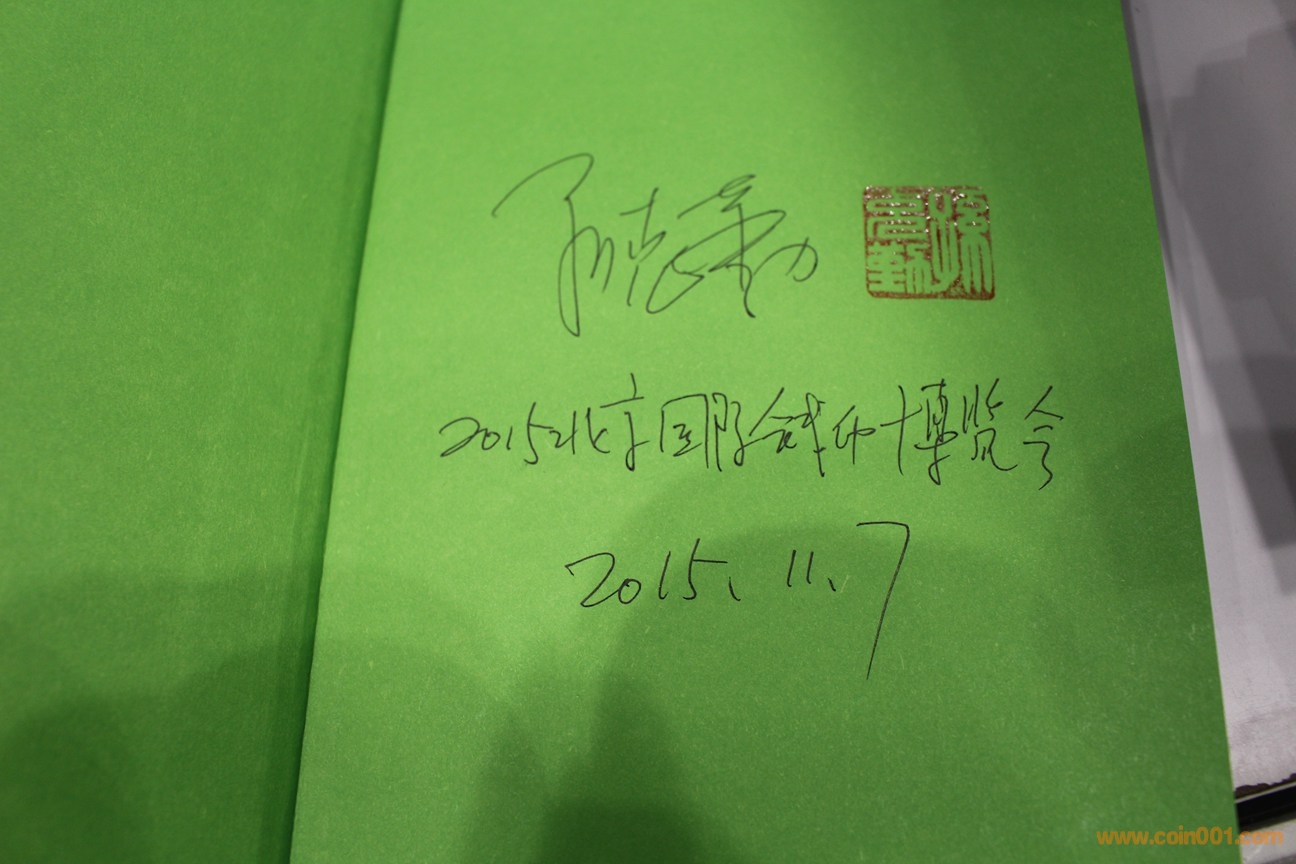 孙克勤
孫克勤
2015北京国际钱币博览会
2015、11、7
www.coin001.com